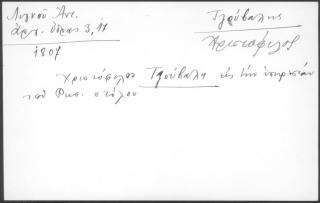 Λιγνοῦ Ἀντ.
ἀρχ. Ὕδρας 3, 11
1807
Τζούβαλης
Χριστόφιλος
Χριστόφιλος Τζούβαλη εἰς τὴν ὑπηρεσίαν
τοῦ Ρωσ. στόλου